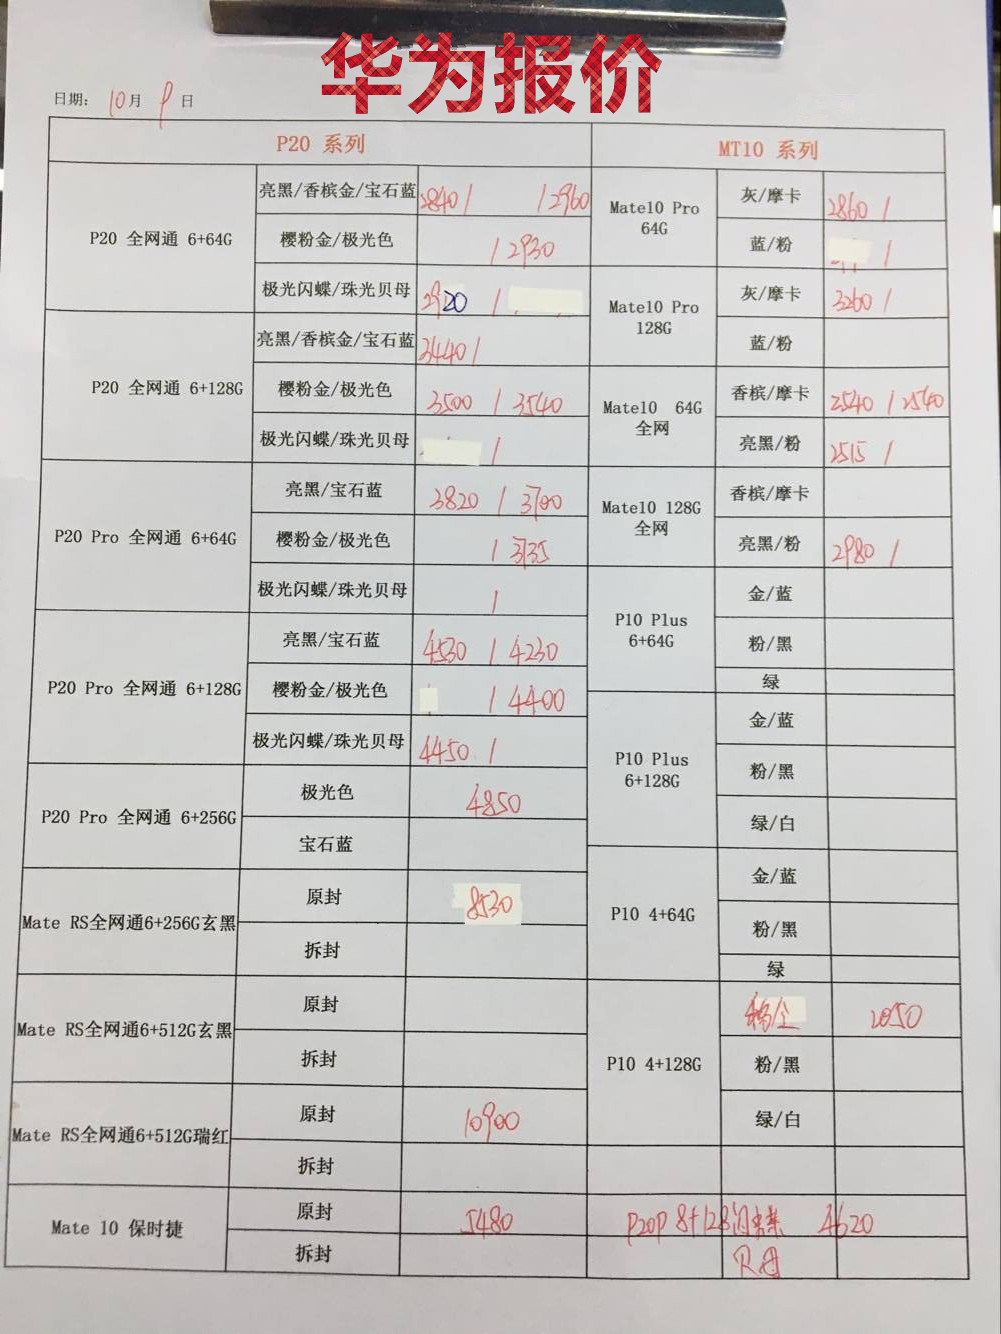 华为报价
日期: 10月 9日
P20 系列
MT10 系列
P20 全网通 6+64G
亮黑/香槟金/宝石蓝 2840/ /2960
樱粉金/极光色 /2930
极光闪蝶/珠光贝母 2920 /
P20 全网通 6+128G
亮黑/香槟金/宝石蓝 3440/
樱粉金/极光色 3500 / 3540
极光闪蝶/珠光贝母 /
P20 Pro 全网通 6+64G
亮黑/宝石蓝 3820 / 3700
樱粉金/极光色 / 3735
极光闪蝶/珠光贝母 /
P20 Pro 全网通 6+128G
亮黑/宝石蓝 4530 / 4230
樱粉金/极光色 / 4400
极光闪蝶/珠光贝母 4450 /
P20 Pro 全网通 6+256G
极光色 4850
宝石蓝
Mate RS全网通6+256G玄黑
原封 8530
拆封
Mate RS全网通6+512G玄黑
原封
拆封
Mate RS全网通6+512G瑞红
原封 10900
拆封
Mate 10 保时捷
原封 5480
拆封
Mate10 Pro
64G
灰/摩卡 2860 /
蓝/粉 /
Mate10 Pro
128G
灰/摩卡 3260 /
蓝/粉
Mate10 64G
全网
香槟/摩卡 2540 / 2540
亮黑/粉 2515 /
Mate10 128G
全网
香槟/摩卡
亮黑/粉 2980 /
P10 Plus
6+64G
金/蓝
粉/黑
绿
P10 Plus
6+128G
金/蓝
粉/黑
绿/白
P10 4+64G
金/蓝
粉/黑
绿
P10 4+128G
2050
粉/黑
绿/白
P20P 8+128闪蝶 4620
贝母